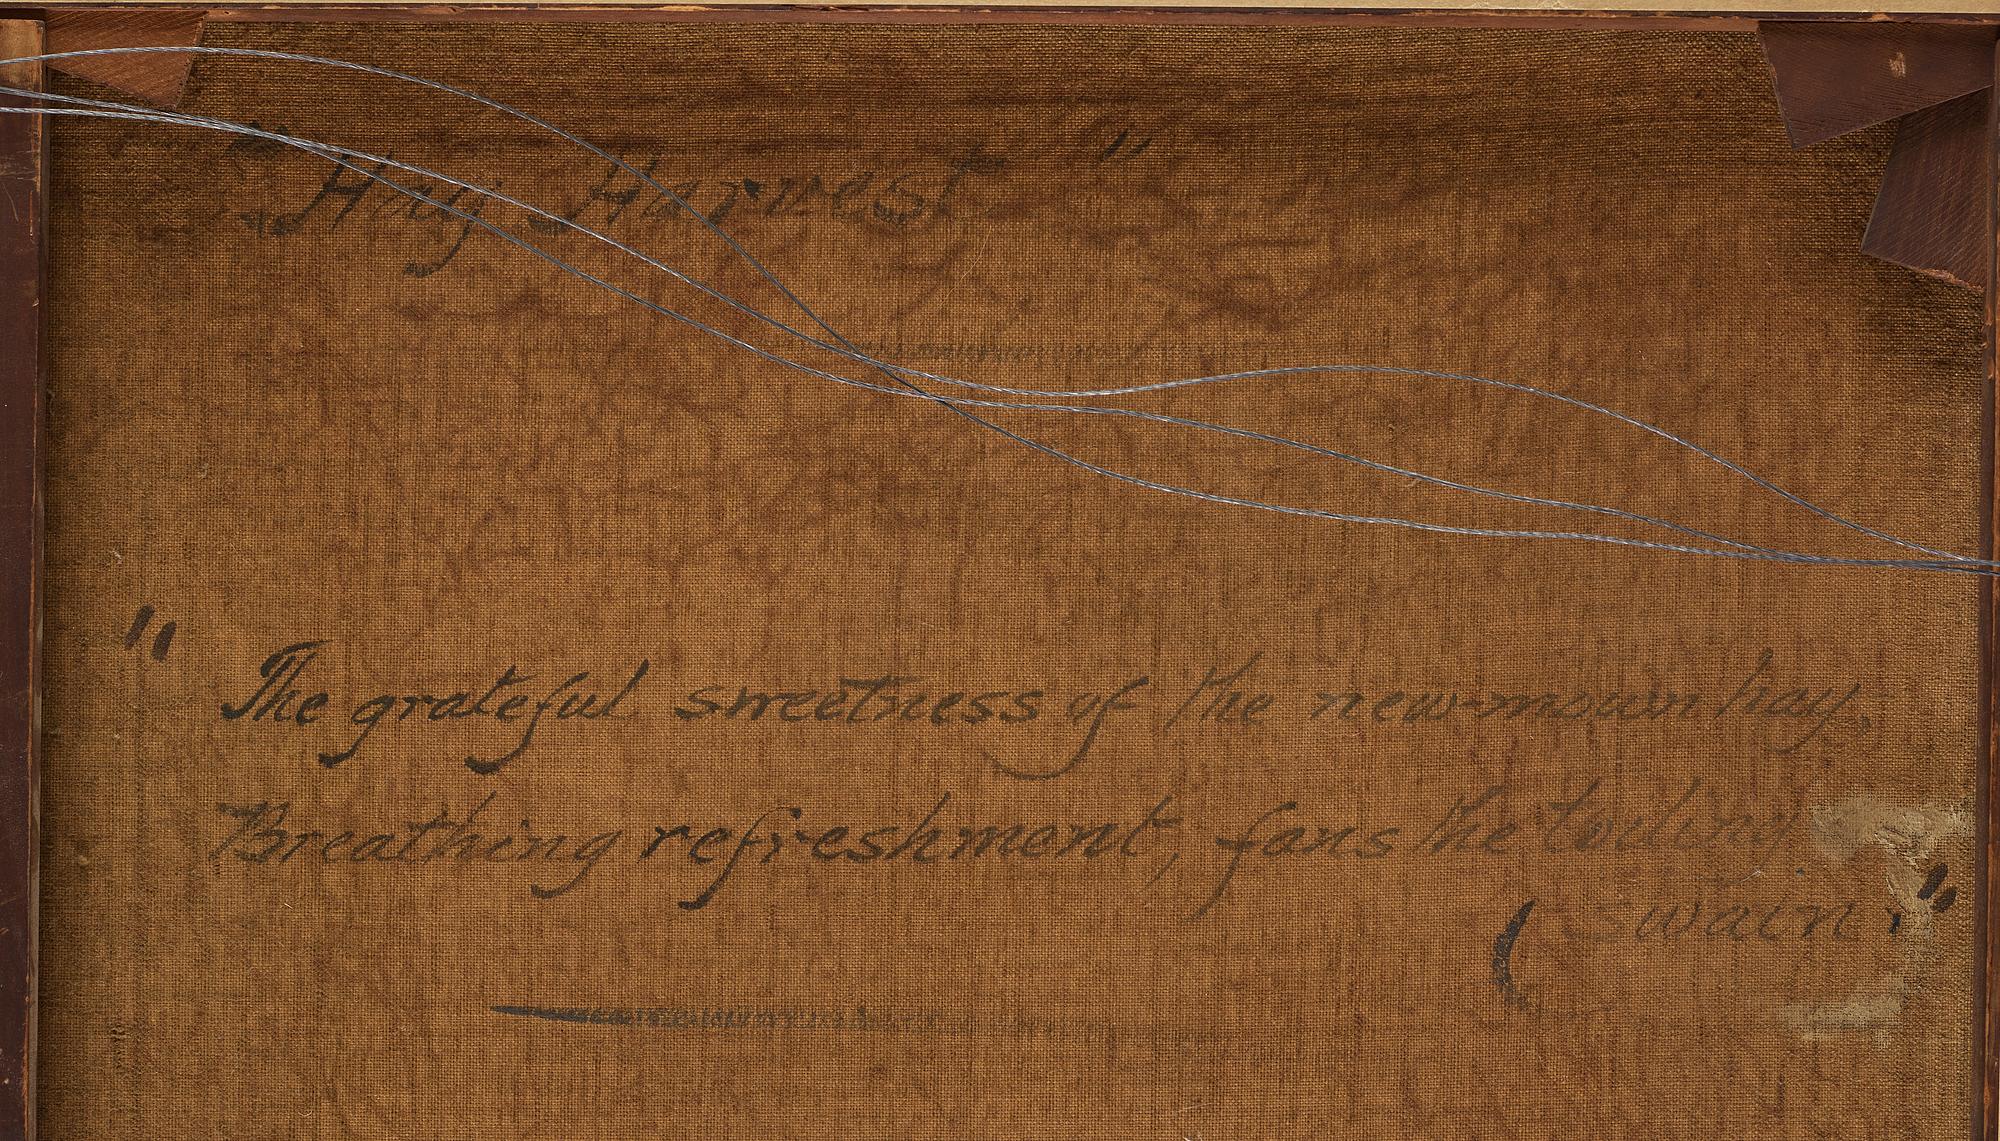 "Hay Harvest"
"The grateful sweetness of the new-mown hay,
Breathing refreshment, fans the toiling
(Swain."